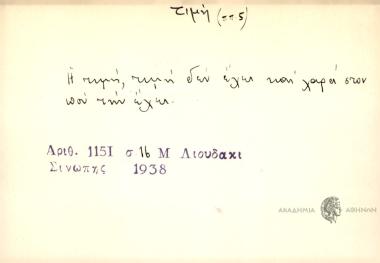 τιμή (π 5)
Η τιμή, τιμή δεν έχει και χαρά στον
πού την έχει.
Αριθ. 1151 σ 16 Μ Λιουδακι
Σινωπης 1938
ΑΚΑΔΗΜΙΑ ΑΘΗΝΩΝ